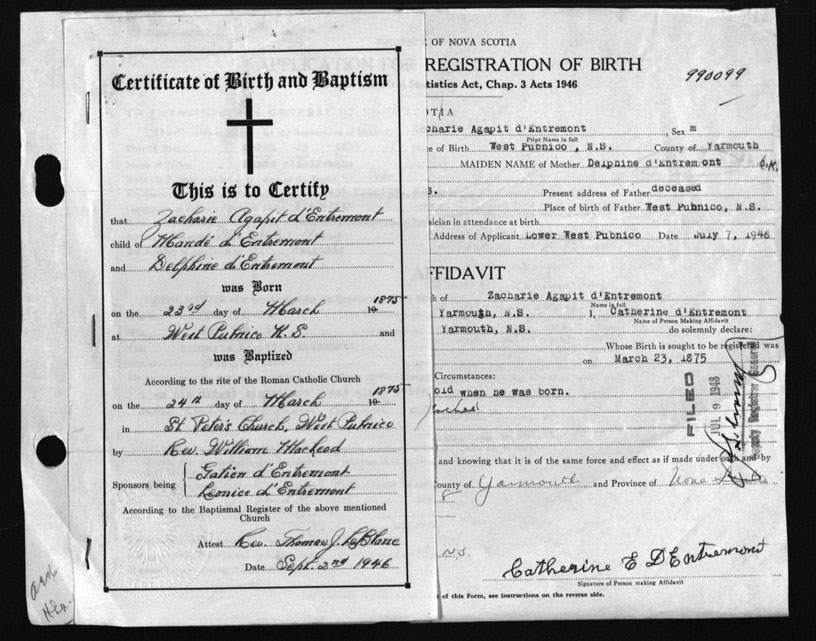 Certificate of Birth and Baptism
This is to Certify
that Zacharie Agapit d'Entremont
child of Mandé d'Entremont
and Delphine d'Entremont
was Born
on the 23rd day of March 1875 19
at West Pubnico N.S and
was Baptized
According to the rite of the Roman Catholic Church
on the 24th day of March 1875 19
in St. Peter's Church, West Pubnico
by Rev. William MacLeod
Sponsors being Gatien d'Entremont
Leonice d'Entremont
According to the Baptismal Register of the above mentioned
Church
Attest Rev. Thomas J. LeBlanc
Date Sept. 2nd 1946
E OF NOVA SCOTIA
REGISTRATION OF BIRTH
990099
tistics Act, Chap. 3 Acts 1946
OTIA
charie Agapit d'Entremont , Sex m
Print Name in full
ce of Birth West Pubnico, N.S. County of Yarmouth
MAIDEN NAME of Mother Delphine d'Entremont O.K.
S. Present address of Father deceased
Place of birth of Father West Pubnico, N.S.
ysician in attendance at birth
Address of Applicant Lower West Pubnico Date July 7, 1948
FFIDAVIT
h of Zacharie Agapit d'Entremont
Name in full
Yarmouth, N.S. I, Catherine d'Entremont
Name of Person Making Affidavit
Yarmouth, N.S. do solemnly declare:
Whose Birth is sought to be registered was
on March 23, 1875
Circumstances:
old when he was born.
FILED
JUL 9 1948
and knowing that it is of the same force and effect as if made under oath and by
County of Yarmouth and Province of Nova
N.S.
Catherine E D'Entremont
Signature of Person making Affidavit
t of this Form, see instructions on the reverse side.